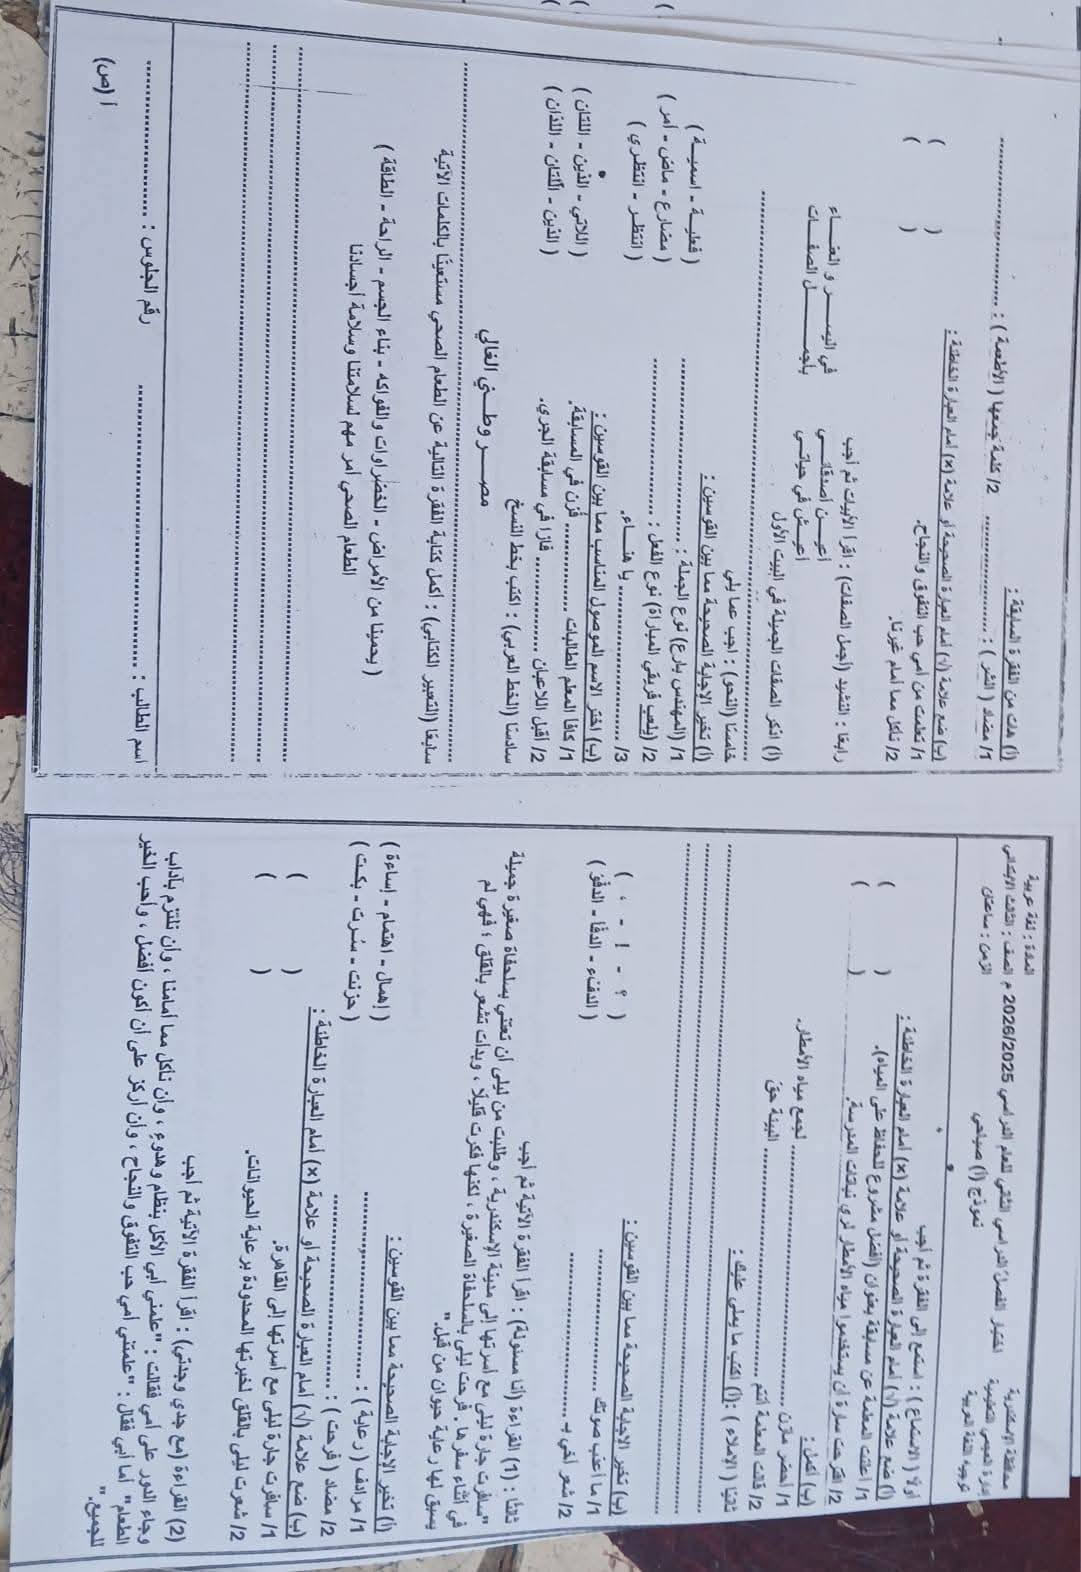 محافظة الإسكندرية
إدارة العجمي التعليمية
توجيه اللغة العربية
اختبار الفصل الدراسي الثاني للعام الدراسي 2026/2025 م
نموذج (أ) صباحي
المادة : لغة عربية
الصف : الثالث الابتدائي
الزمن : ساعتان
أولاً ( الاستماع ) : استمع إلى الفقرة ثم أجب
(أ) ضع علامة (√) أمام العبارة الصحيحة أو علامة (×) أمام العبارة الخاطئة :
1/ أعلنت المعلمة عن مسابقة بعنوان (أفضل مشروع للحفاظ على المياه). ( )
2/ اقترحت سارة أن يستخدموا مياه الأمطار لري نباتات المدرسة. ( )
(ب) أكمل :
1/ أحضر مازن .................... لجمع مياه الأمطار.
2/ قالت المعلمة أنتم .................... البيئة حقًّ
ثانيًا ( الإملاء ) :(أ) اكتب ما يملى عليك :
....................
....................
....................
(ب) تخير الإجابة الصحيحة مما بين القوسين :
1/ ما أعذب صوتك .................... ( ؟ - ! - ، )
2/ شعر أخي بـ .................... ( الدفاء - الدفأ - الدفؤ )
ثالثًا : (1) القراءة (أنا مسئولة) : اقرأ الفقرة الآتية ثم أجب
"سافرت جارة ليلى مع أسرتها إلى مدينة الإسكندرية ، وطلبت من ليلى أن تعتني بسلحفاة صغيرة جميلة
في أثناء سفرها . فرحت ليلى بالسلحفاة الصغيرة ، لكنها فكرت قليلًا ، وبدأت تشعر بالقلق ؛ فهي لم
يسبق لها رعاية حيوان من قبل."
(أ) تخير الإجابة الصحيحة مما بين القوسين :
1/ مرادف ( رعاية ) : .................... ( إهمال - اهتمام - إساءة )
2/ مضاد ( فرحت ) : .................... ( حزنت - سُرت - بكت )
(ب) ضع علامة (√) أمام العبارة الصحيحة أو علامة (×) أمام العبارة الخاطئة :
1/ سافرت جارة ليلى مع أسرتها إلى القاهرة. ( )
2/ شعرت ليلى بالقلق لخبرتها المحدودة برعاية الحيوانات. ( )
(2) القراءة (مع جدي وجدتي) : اقرأ الفقرة الآتية ثم أجب
وجاء الدور على أمي فقالت : "علمني أبي الأكل بنظام وهدوء ، وأن نأكل مما أمامنا ، وأن نلتزم بآداب
الطعام" أما أبي فقال : "علمتني أمي حب التفوق والنجاح ، وأن أركز على أن أكون أفضل ، وأحب الخير
للجميع."
(أ) هات من الفقرة السابقة :
1/ مضاد ( الشر ) : .................... 2/ كلمة جمعها ( الأطعمة ) : ....................
(ب) ضع علامة (√) أمام العبارة الصحيحة أو علامة (×) أمام العبارة الخاطئة :
1/ تعلمت من أمي حب التفوق والنجاح. ( )
2/ نأكل مما أمام غيرنا. ( )
رابعًا : النشيد (أجمل الصفات) : اقرأ الأبيات ثم أجب
أعيـن أصدقائـي في اليسـر و العنـاء
أعيـش في حياتـي بأجمـل الصفـات
(أ) اذكر الصفات الجميلة في البيت الأول
....................
خامسًا (النحو) : أجب عما يلي
(أ) تخير الإجابة الصحيحة مما بين القوسين :
1/ (المهندس بارع) نوع الجملة : .................... ( فعليـة - اسميـة )
2/ (يلعب فريقي المباراة) نوع الفعل : .................... ( مضارع - ماض - أمر )
3/ .................... يا هنـاء. ( انتظـر - انتظري )
(ب) اختر الاسم الموصول المناسب مما بين القوسين :
1/ كافأ المعلم الطالبات .................... فُزن في المسابقة. ( اللاتي - الذين - اللتان )
2/ أقبل اللاعبان .................... فازا في مسابقة الجري. ( الذين - اللتان - اللذان )
سادسًا (الخط العربي) : اكتب بخط النسخ
مصـر وطـني الغالي
....................
سابعًا (التعبير الكتابي) : أكمل كتابة الفقرة التالية عن الطعام الصحي مستعينًا بالكلمات الآتية
( يحمينا من الأمراض - الخضراوات والفواكه - بناء الجسم - الراحة - الطاقة )
الطعام الصحي أمر مهم لسلامتنا وسلامة أجسادنا
....................
....................
....................
اسم الطالب : .................... رقم الجلوس : ....................
أ (ص)